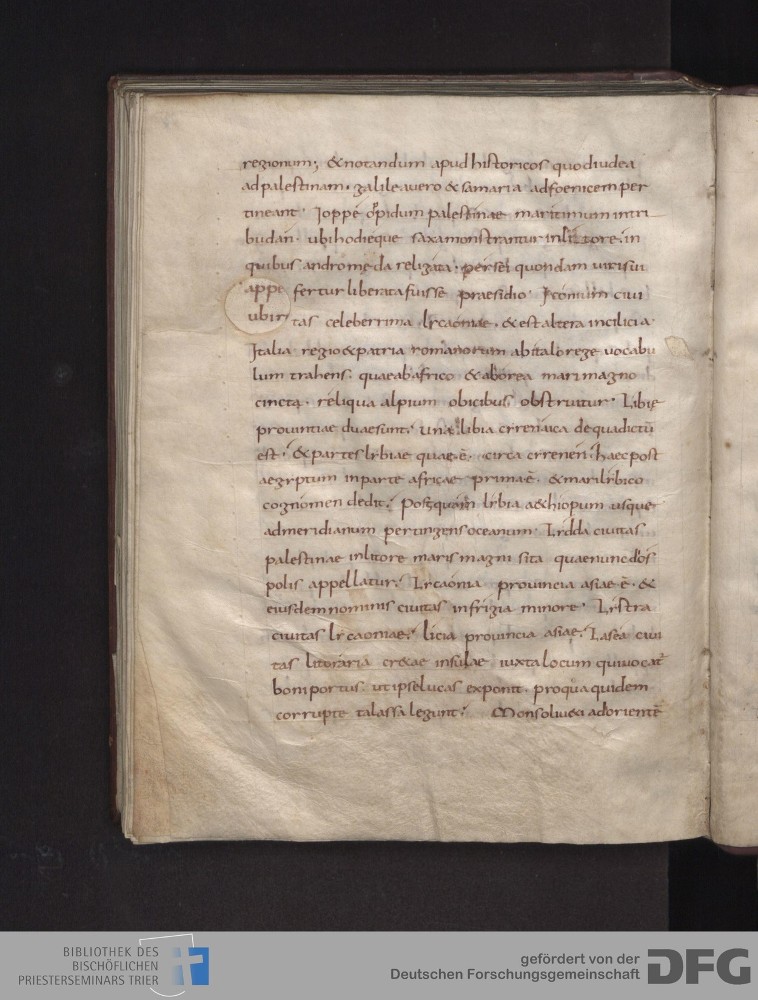 regionum; & notandum apud historicos quod iudea
ad palestinam. galilea uero & samaria ad foenicem per
tineant. Ioppe opidum palestinae maritimum in tri
budan. ubi hodieque saxa monstrantur in litore. in
quibus andromeda religata. persei quondam uiri sui
appe fertur liberata fuisse praesidio. Iconium ciui
ubir tas celeberrima lycaoniae. & est altera in cilicia.
Italia regio & patria romanorum ab italo rege uocabu
lum trahens. quae ab africo & a borea mari magno
cinctę. reliqua alpium obicibus obstruitur. Libię
prouintiae duae sunt. una libia cyrenaica de qua dictū
est. & partes lybiae quae .ē. circa cyrenen. haec post
aegyptum in parte africae prima .ē. & mari lybico
cognomen dedit. Postquam lybia aethiopum usque
ad meridianum pertingens oceanum. Lydda ciuitas
palestinae in litore maris magni sita quae nunc dios
polis appellatur. Lycaonia prouincia asiae .ē. &
eiusdem nominis ciuitas in frigia minore. Lystra
ciuitas lycaoniae. licia prouincia asiae. Lasea ciui
tas litoraria cretae insulae iuxta locum qui uocat̄
boni portus. ut ipse lucas exponit. pro qua quidem
corrupte talassa legunt. Mons oliueti ad orientē
BIBLIOTHEK DES
BISCHÖFLICHEN
PRIESTERSEMINARS TRIER
gefördert von der
Deutschen Forschungsgemeinschaft
DFG